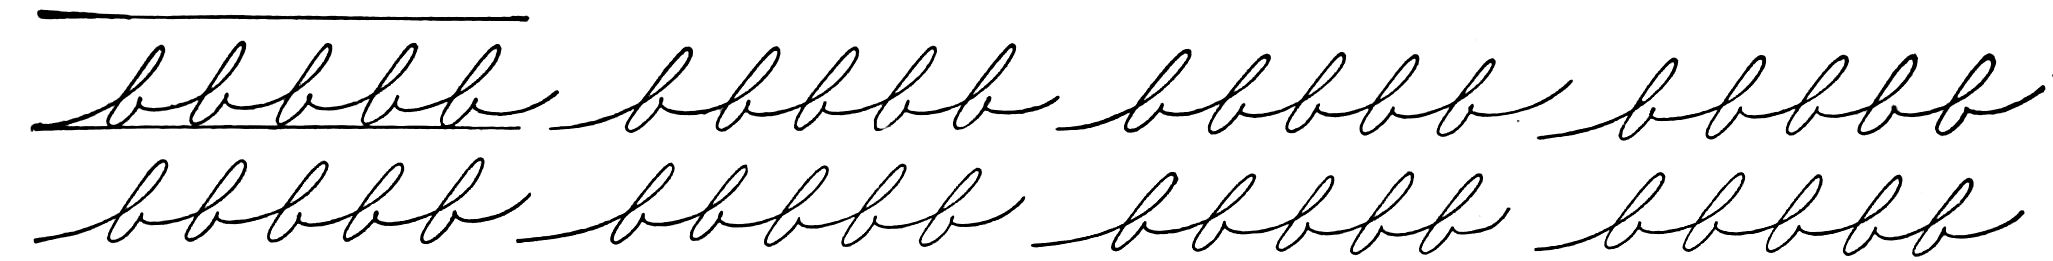 bbbbb bbbbb bbbbb bbbbb
bbbbb bbbbb bbbbb bbbbb